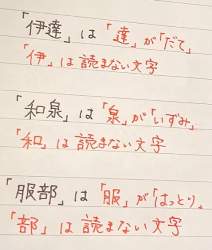 「伊達」は「達」が「だて」
「伊」は読まない文字
「和泉」は「泉」が「いずみ」
「和」は読まない文字
「服部」は「服」が「はっとり」
「部」は読まない文字